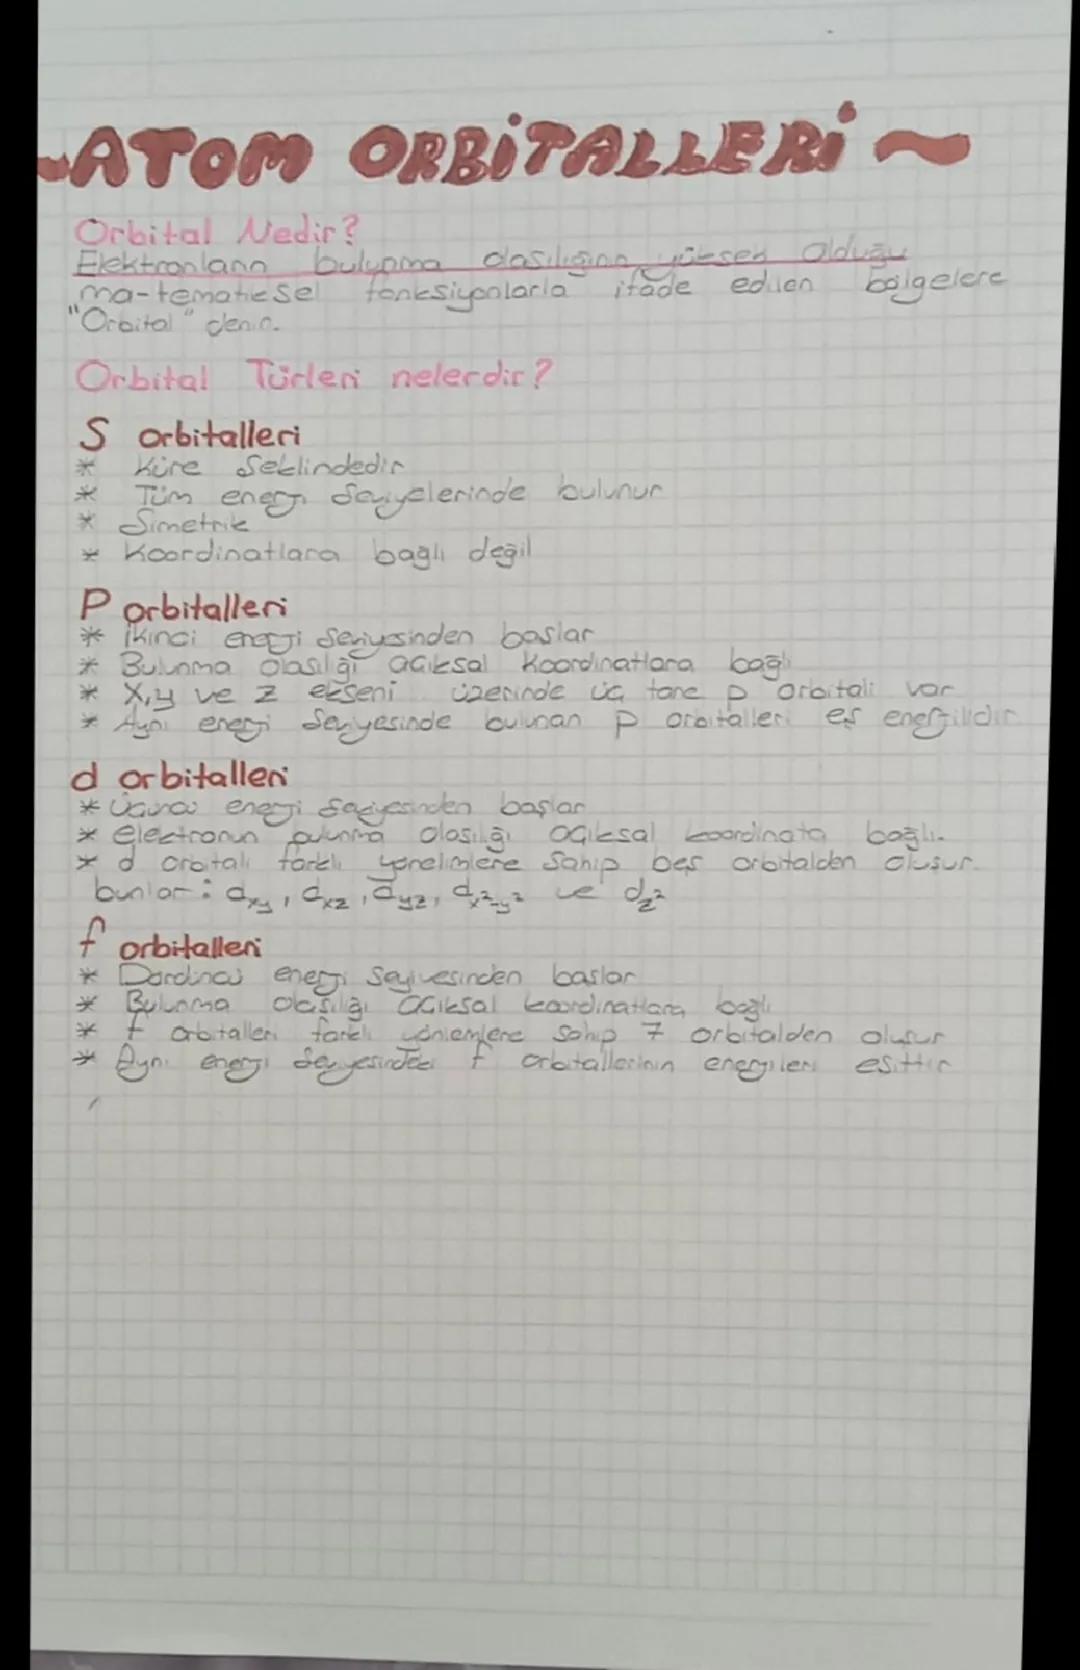 ~ATOM ORBİTALLERİ~
Orbital Nedir?
Elektronların bulunma olasılığının yüksek olduğu
ma-tematiksel fonksiyonlarla ifade edilen bölgelere
"Orbital" denir.
Orbital Türleri nelerdir?
S orbitalleri
* Küre Şeklindedir
* Tüm enerji Seviyelerinde bulunur
* Simetrik
* Koordinatlara bağlı değil
P orbitalleri
* İkinci enerji Seviyesinden başlar
* Bulunma olasılığı açıksal Koordinatlara bağlı
* X,y ve z ekseni üzerinde üç tane p orbitali var
* Aynı enerji Seviyesinde bulunan p orbitalleri eş enerjilidir
d orbitalleri
* Üçüncü enerji Seviyesinden başlar
* elektronun bulunma olasılığı açıksal koordinata bağlı.
* d orbitali farklı yönelimlere Sahip beş orbitalden oluşur.
bunlar: dxy, dxz, dyz, dx²-y² ve dz²
f orbitalleri
* Dördüncü enerji Seviyesinden başlar
* Bulunma olasılığı açıksal koordinatlara bağlı
* f orbitalleri farklı yönlemlere Sahip 7 orbitalden oluşur
* Aynı enerji Seviyesindeki f orbitallerinin enerjileri eşittir